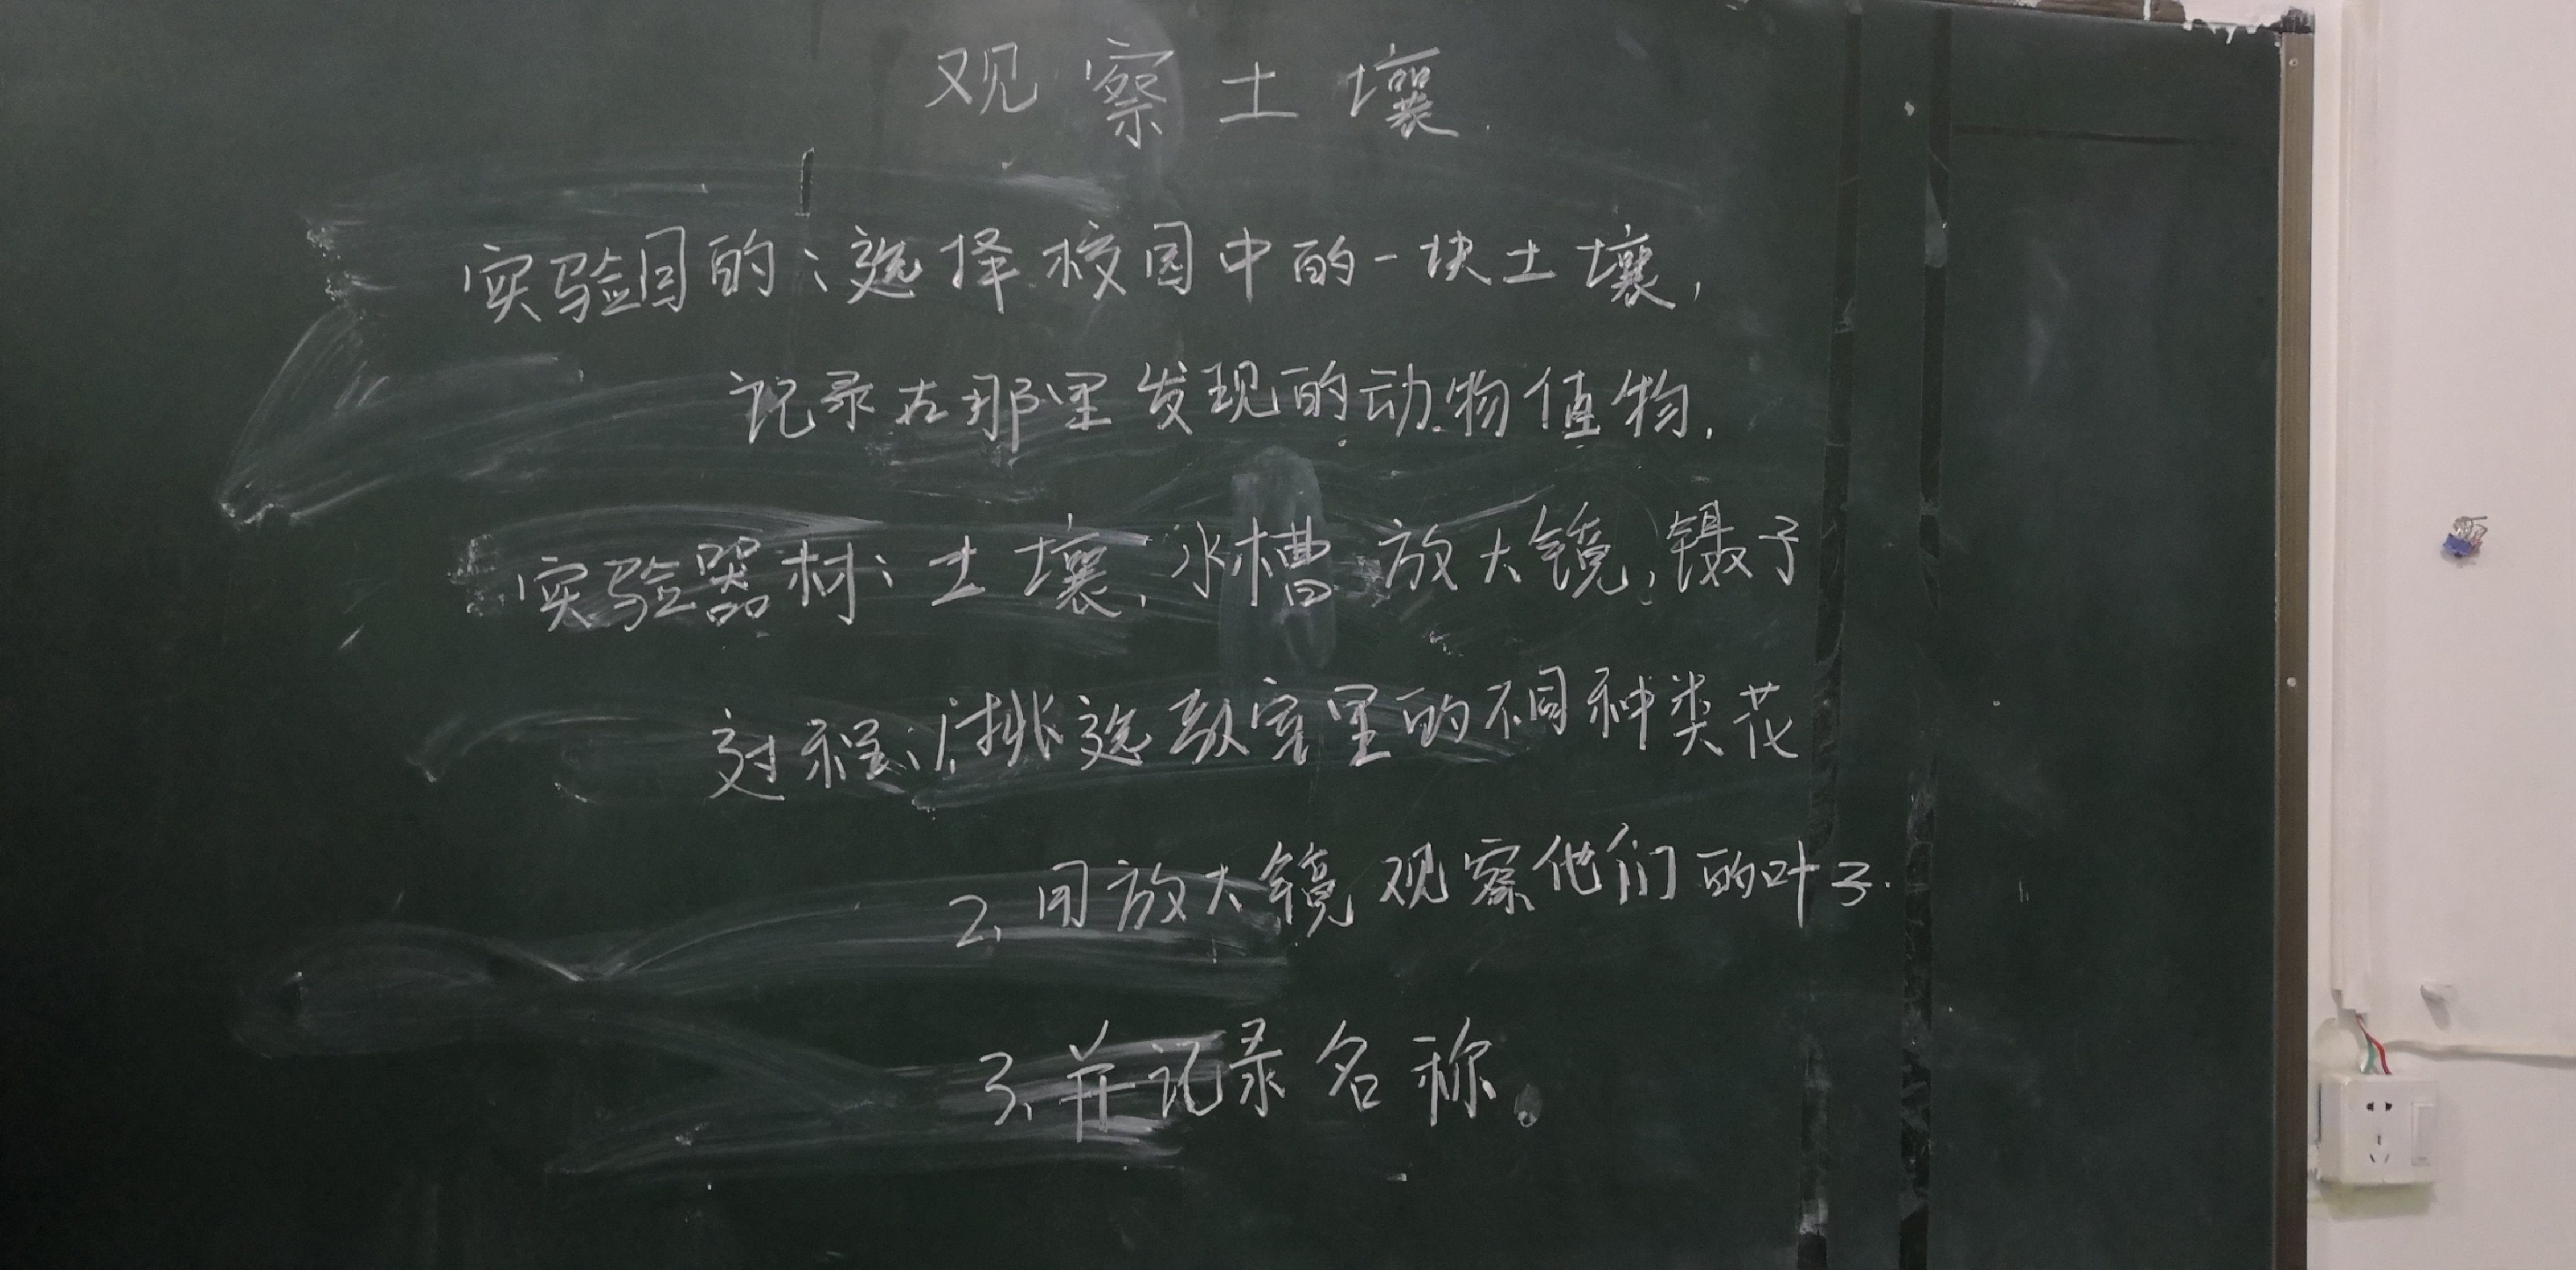 观察土壤
实验目的：选择校园中的一块土壤，
记录在那里发现的动物植物.
实验器材：土壤，水槽 放大镜，镊子
过程：1.挑选教室里的不同种类花
2、用放大镜观察他们的叶子.
3、并记录名称。